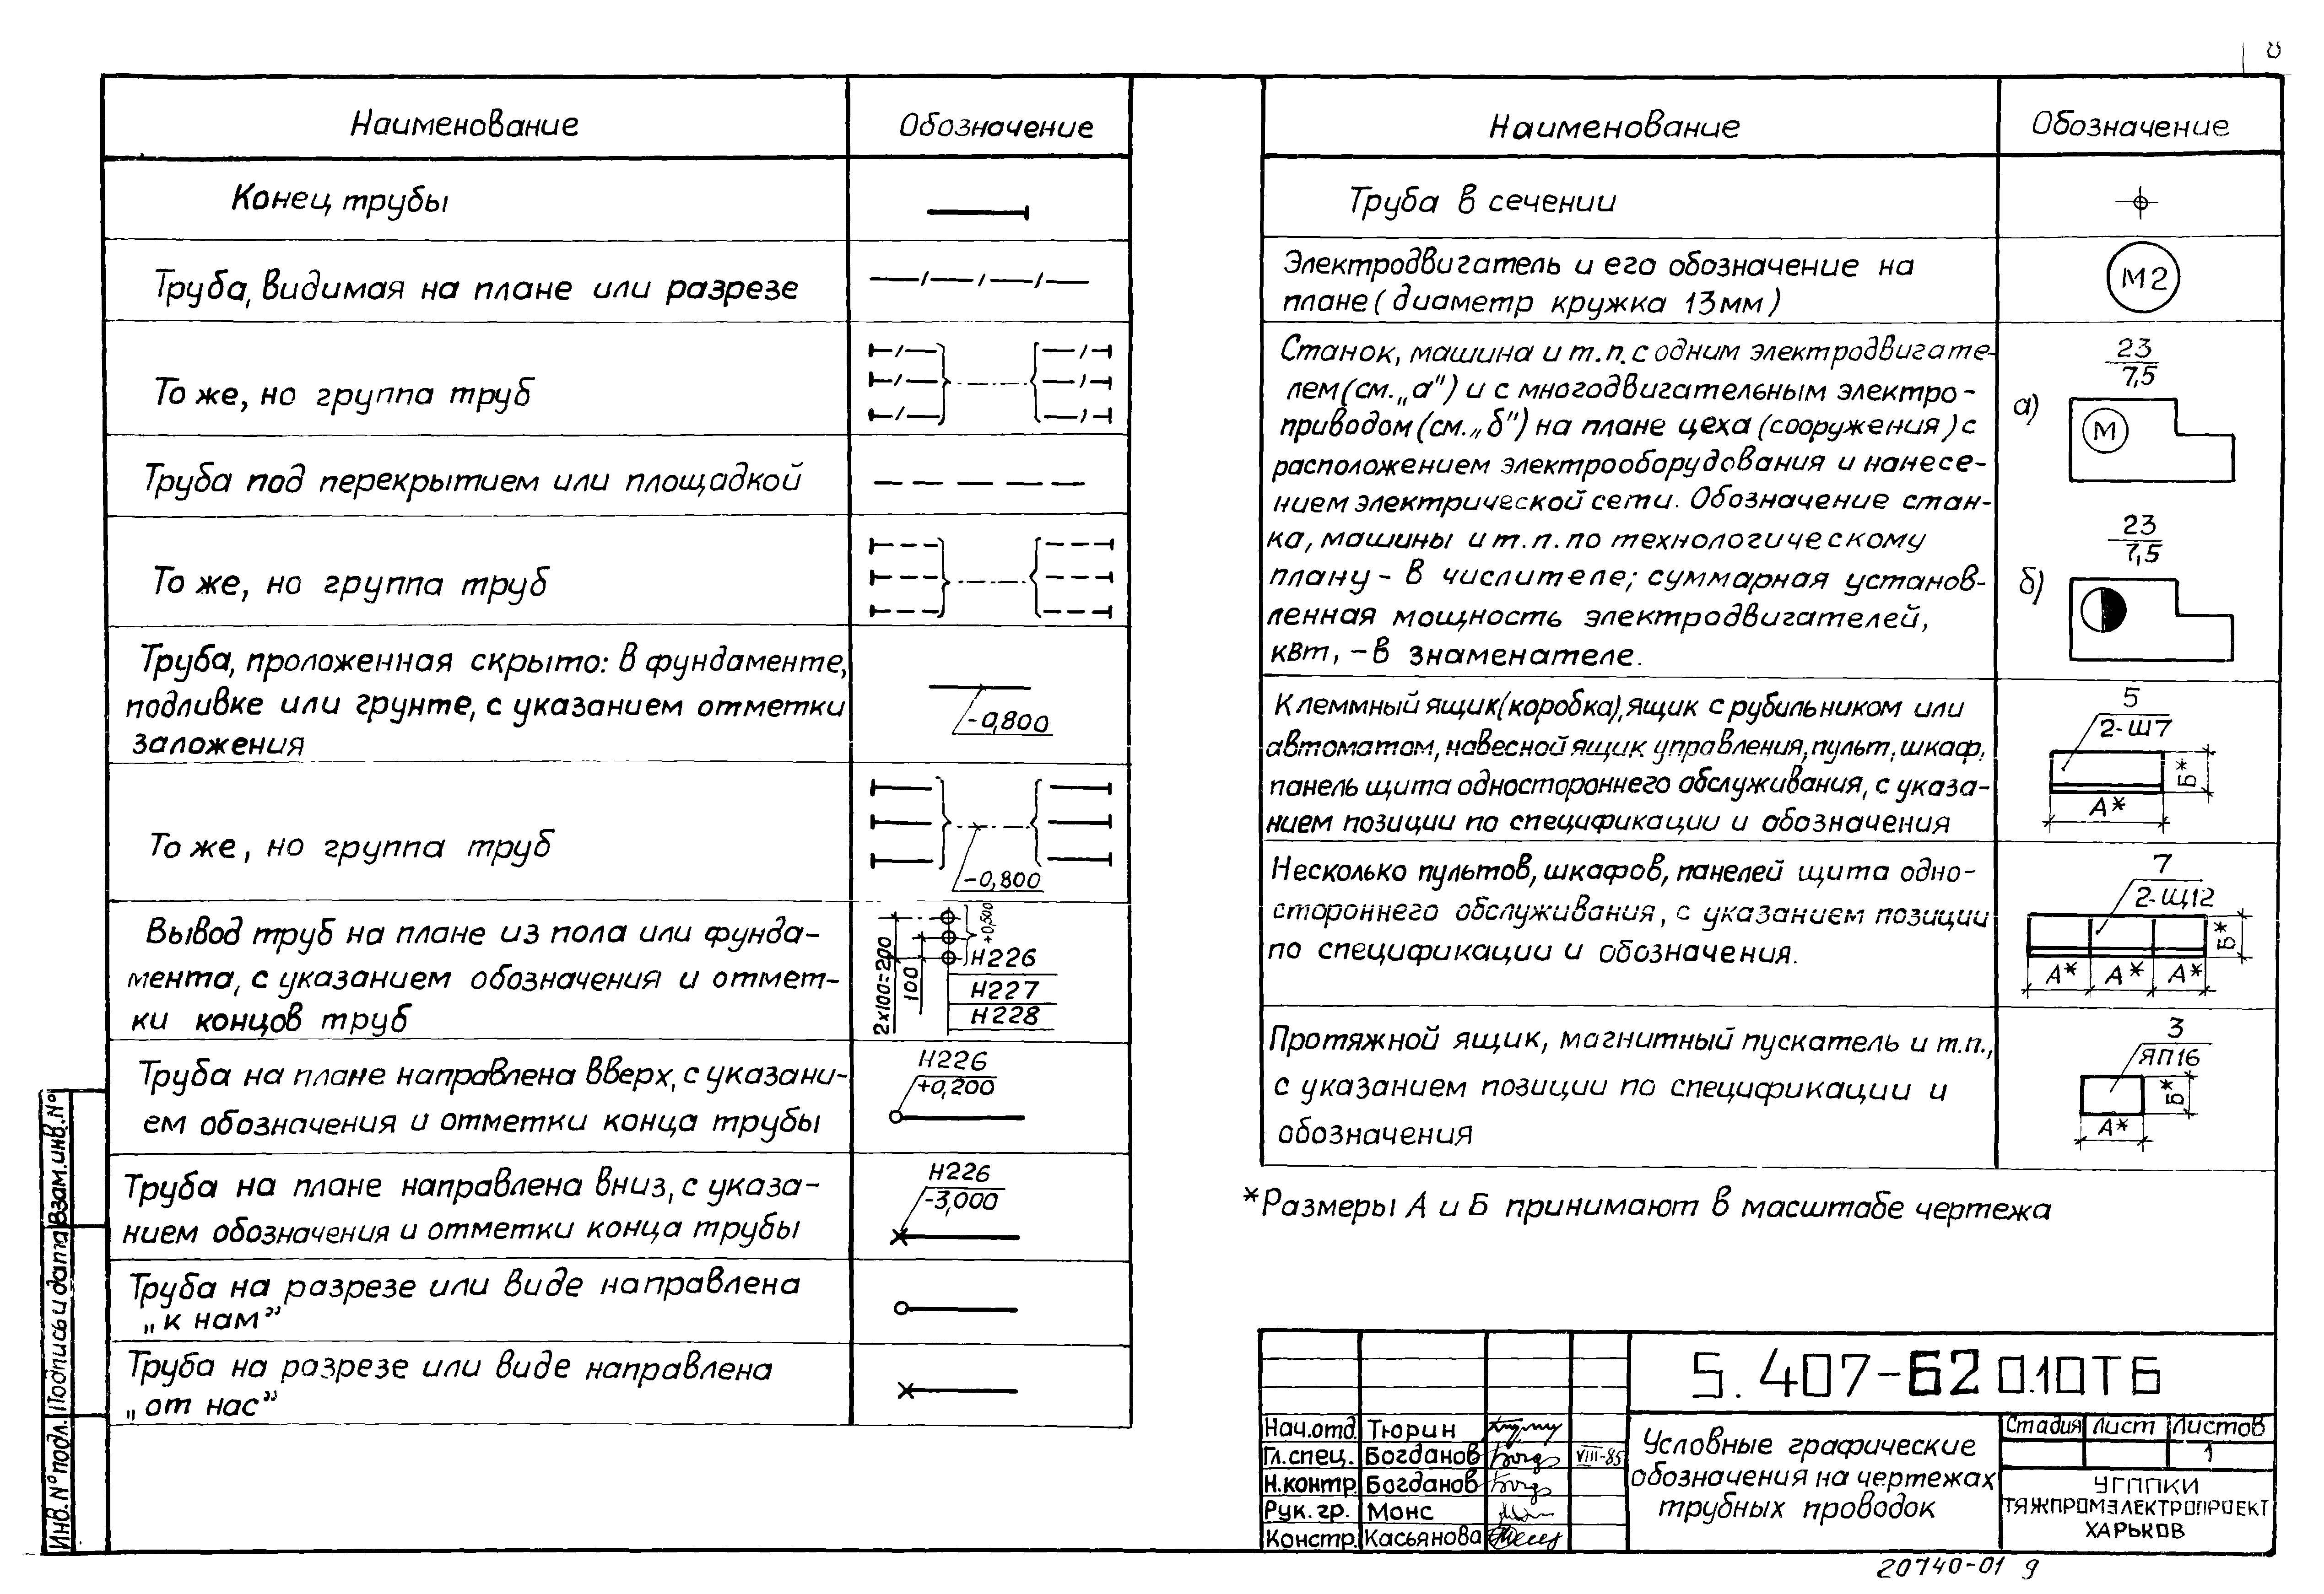 8
Наименование
Обозначение
Конец трубы
Труба, видимая на плане или разрезе
То же, но группа труб
Труба под перекрытием или площадкой
То же, но группа труб
Труба, проложенная скрыто: в фундаменте,
подливке или грунте, с указанием отметки
заложения
-0,800
То же, но группа труб
-0,800
Вывод труб на плане из пола или фунда-
мента, с указанием обозначения и отмет-
ки концов труб
2х100=200
100
+0,800
Н226
Н227
Н228
Труба на плане направлена вверх, с указани-
ем обозначения и отметки конца трубы
Н226
+0,200
Труба на плане направлена вниз, с указа-
нием обозначения и отметки конца трубы
Н226
-3,000
Труба на разрезе или виде направлена
„к нам”
Труба на разрезе или виде направлена
„от нас”
Наименование
Обозначение
Труба в сечении
Электродвигатель и его обозначение на
плане (диаметр кружка 13мм)
М2
Станок, машина и т.п. с одним электродвигате-
лем (см. „а") и с многодвигательным электро-
приводом (см. „б") на плане цеха (сооружения) с
расположением электрооборудования и нанесе-
нием электрической сети. Обозначение стан-
ка, машины и т.п. по технологическому
плану - в числителе; суммарная установ-
ленная мощность электродвигателей,
квт, - в знаменателе.
а)
23
7,5
М
б)
23
7,5
Клеммный ящик (коробка), ящик с рубильником или
автоматом, навесной ящик управления, пульт, шкаф,
панель щита одностороннего обслуживания, с указа-
нием позиции по спецификации и обозначения
5
2-Ш7
Б*
А*
Несколько пультов, шкафов, панелей щита одно-
стороннего обслуживания, с указанием позиции
по спецификации и обозначения.
7
2-Щ12
Б*
А* А* А*
Протяжной ящик, магнитный пускатель и т.п.,
с указанием позиции по спецификации и
обозначения
3
ЯП16
Б*
А*
*Размеры А и Б принимают в масштабе чертежа
5.407-62 0.10ТБ
Нач.отд. Тюрин
Гл.спец. Богданов VIII-85
Н.контр. Богданов
Рук. гр. Монс
Констр. Касьянова
Условные графические
обозначения на чертежах
трубных проводок
Стадия Лист Листов
1
УГППКИ
ТЯЖПРОМЭЛЕКТРОПРОЕКТ
ХАРЬКОВ
Инв. № подл. Подпись и дата Взам.инв.№
20740-01 9